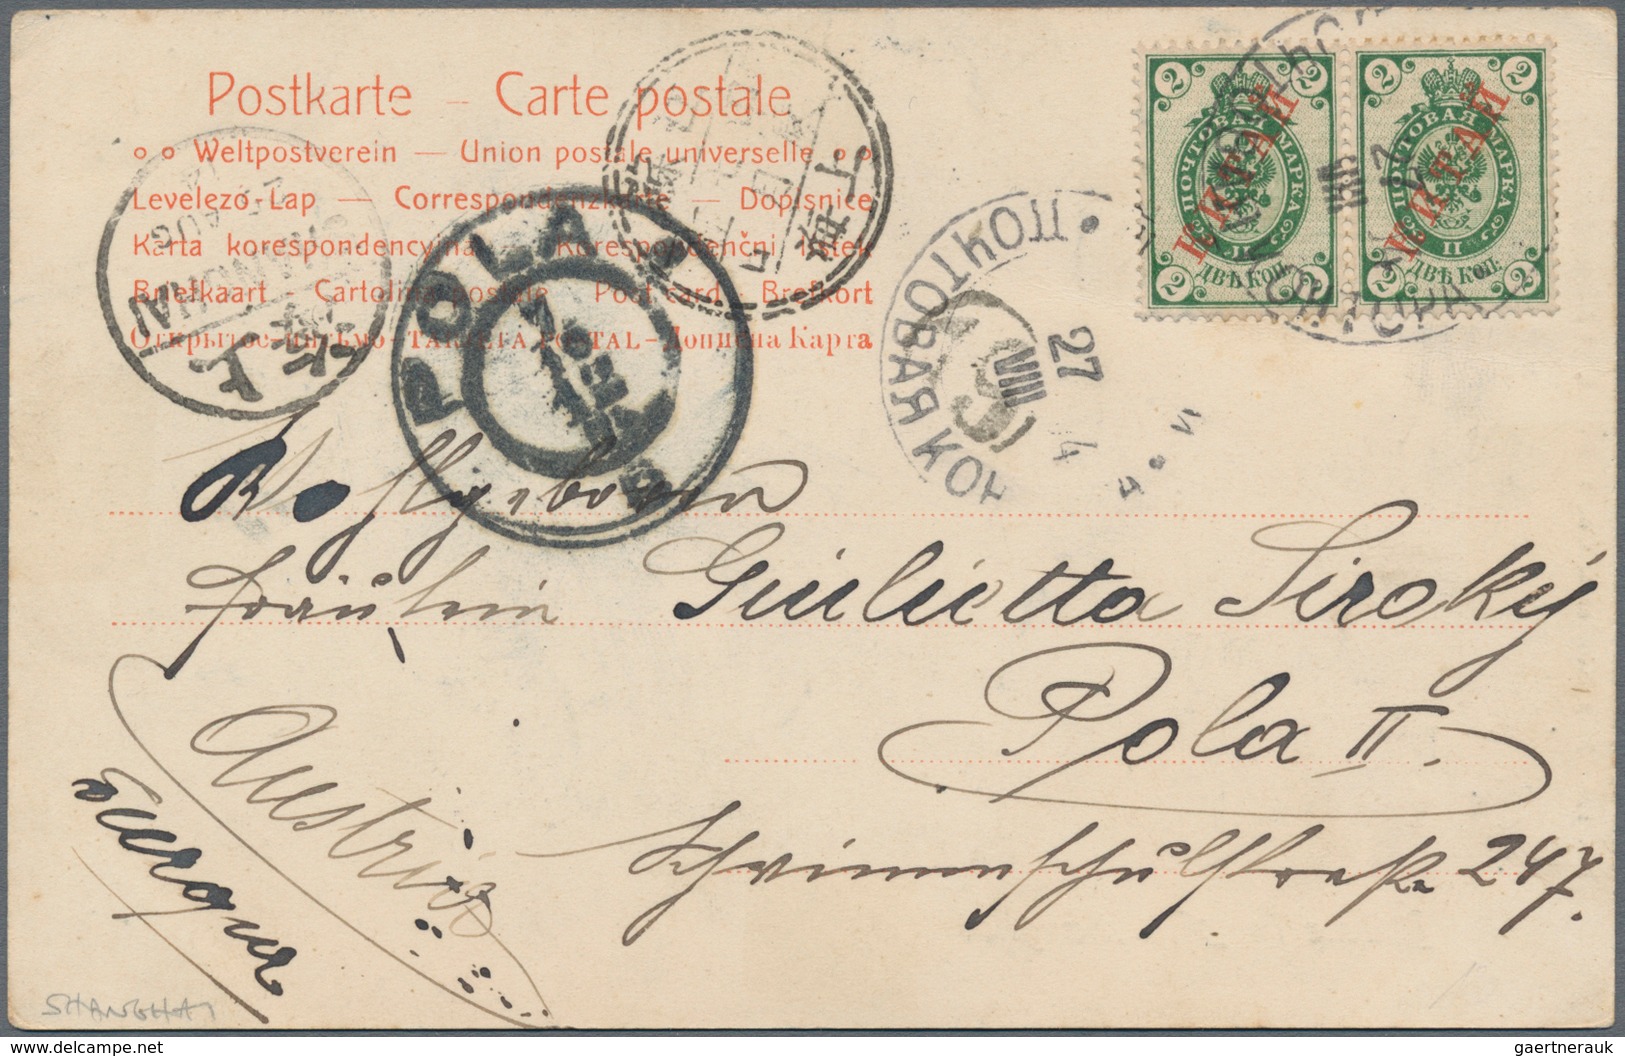 Postkarte – Carte postale
Weltpostverein — Union postale universelle
Levelező-Lap — Correspondenzkarte — Dopisnice
Karta korespondencyjna — Korespondenčni listek
Briefkaart - Cartolina postale Post card - Brefkort
Открытое письмо - TARJETA POSTAL - Дописна Карта
2 2
ПОЧТОВАЯ МАРКА
КИТАЙ
II
ДВѢ КОП.
2 2
2 2
ПОЧТОВАЯ МАРКА
КИТАЙ
II
ДВѢ КОП.
2 2
SHANGHAI
AUG
上
POLA
上海
ПОЧТОВАЯ КОН
27
VIII
4
Wohlgeboren
Fräulein Giulietta Siroký
Pola II.
Schwimmschulstraße 247.
Austria
Europa
SHANGHAI
gaertnerauk